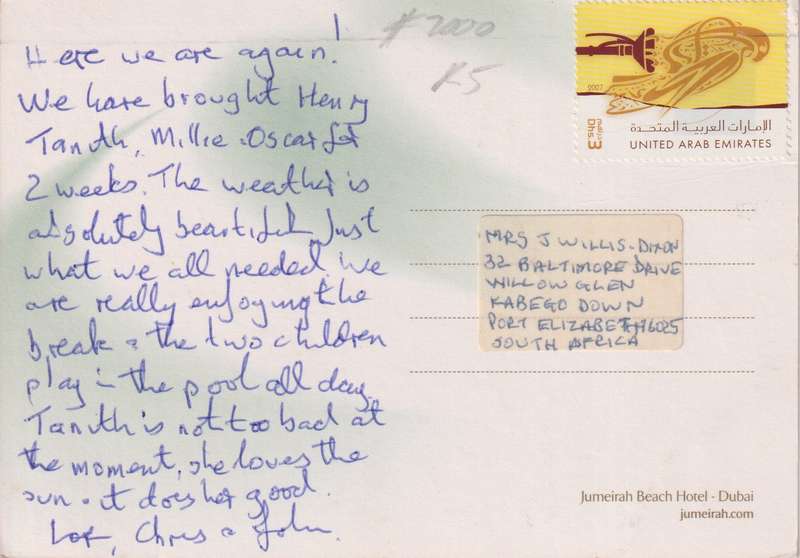 Here we are again!
We have brought Henry
Tanith, Millie & Oscar for
2 weeks. The weather is
absolutely beautiful. Just
what we all needed. We
are really enjoying the
break & the two children
play in the pool all day.
Tanith is not too bad at
the moment, she loves the
sun & it does her good.
Love, Chris & John.
#2000
R5
2007
Dhs 3
الإمارات العربية المتحدة
UNITED ARAB EMIRATES
MRS J WILLIS-DIXON
32 BALTIMORE DRIVE
WILLOW GLEN
KABEGO DOWN
PORT ELIZABETH 6025
SOUTH AFRICA
Jumeirah Beach Hotel - Dubai
jumeirah.com